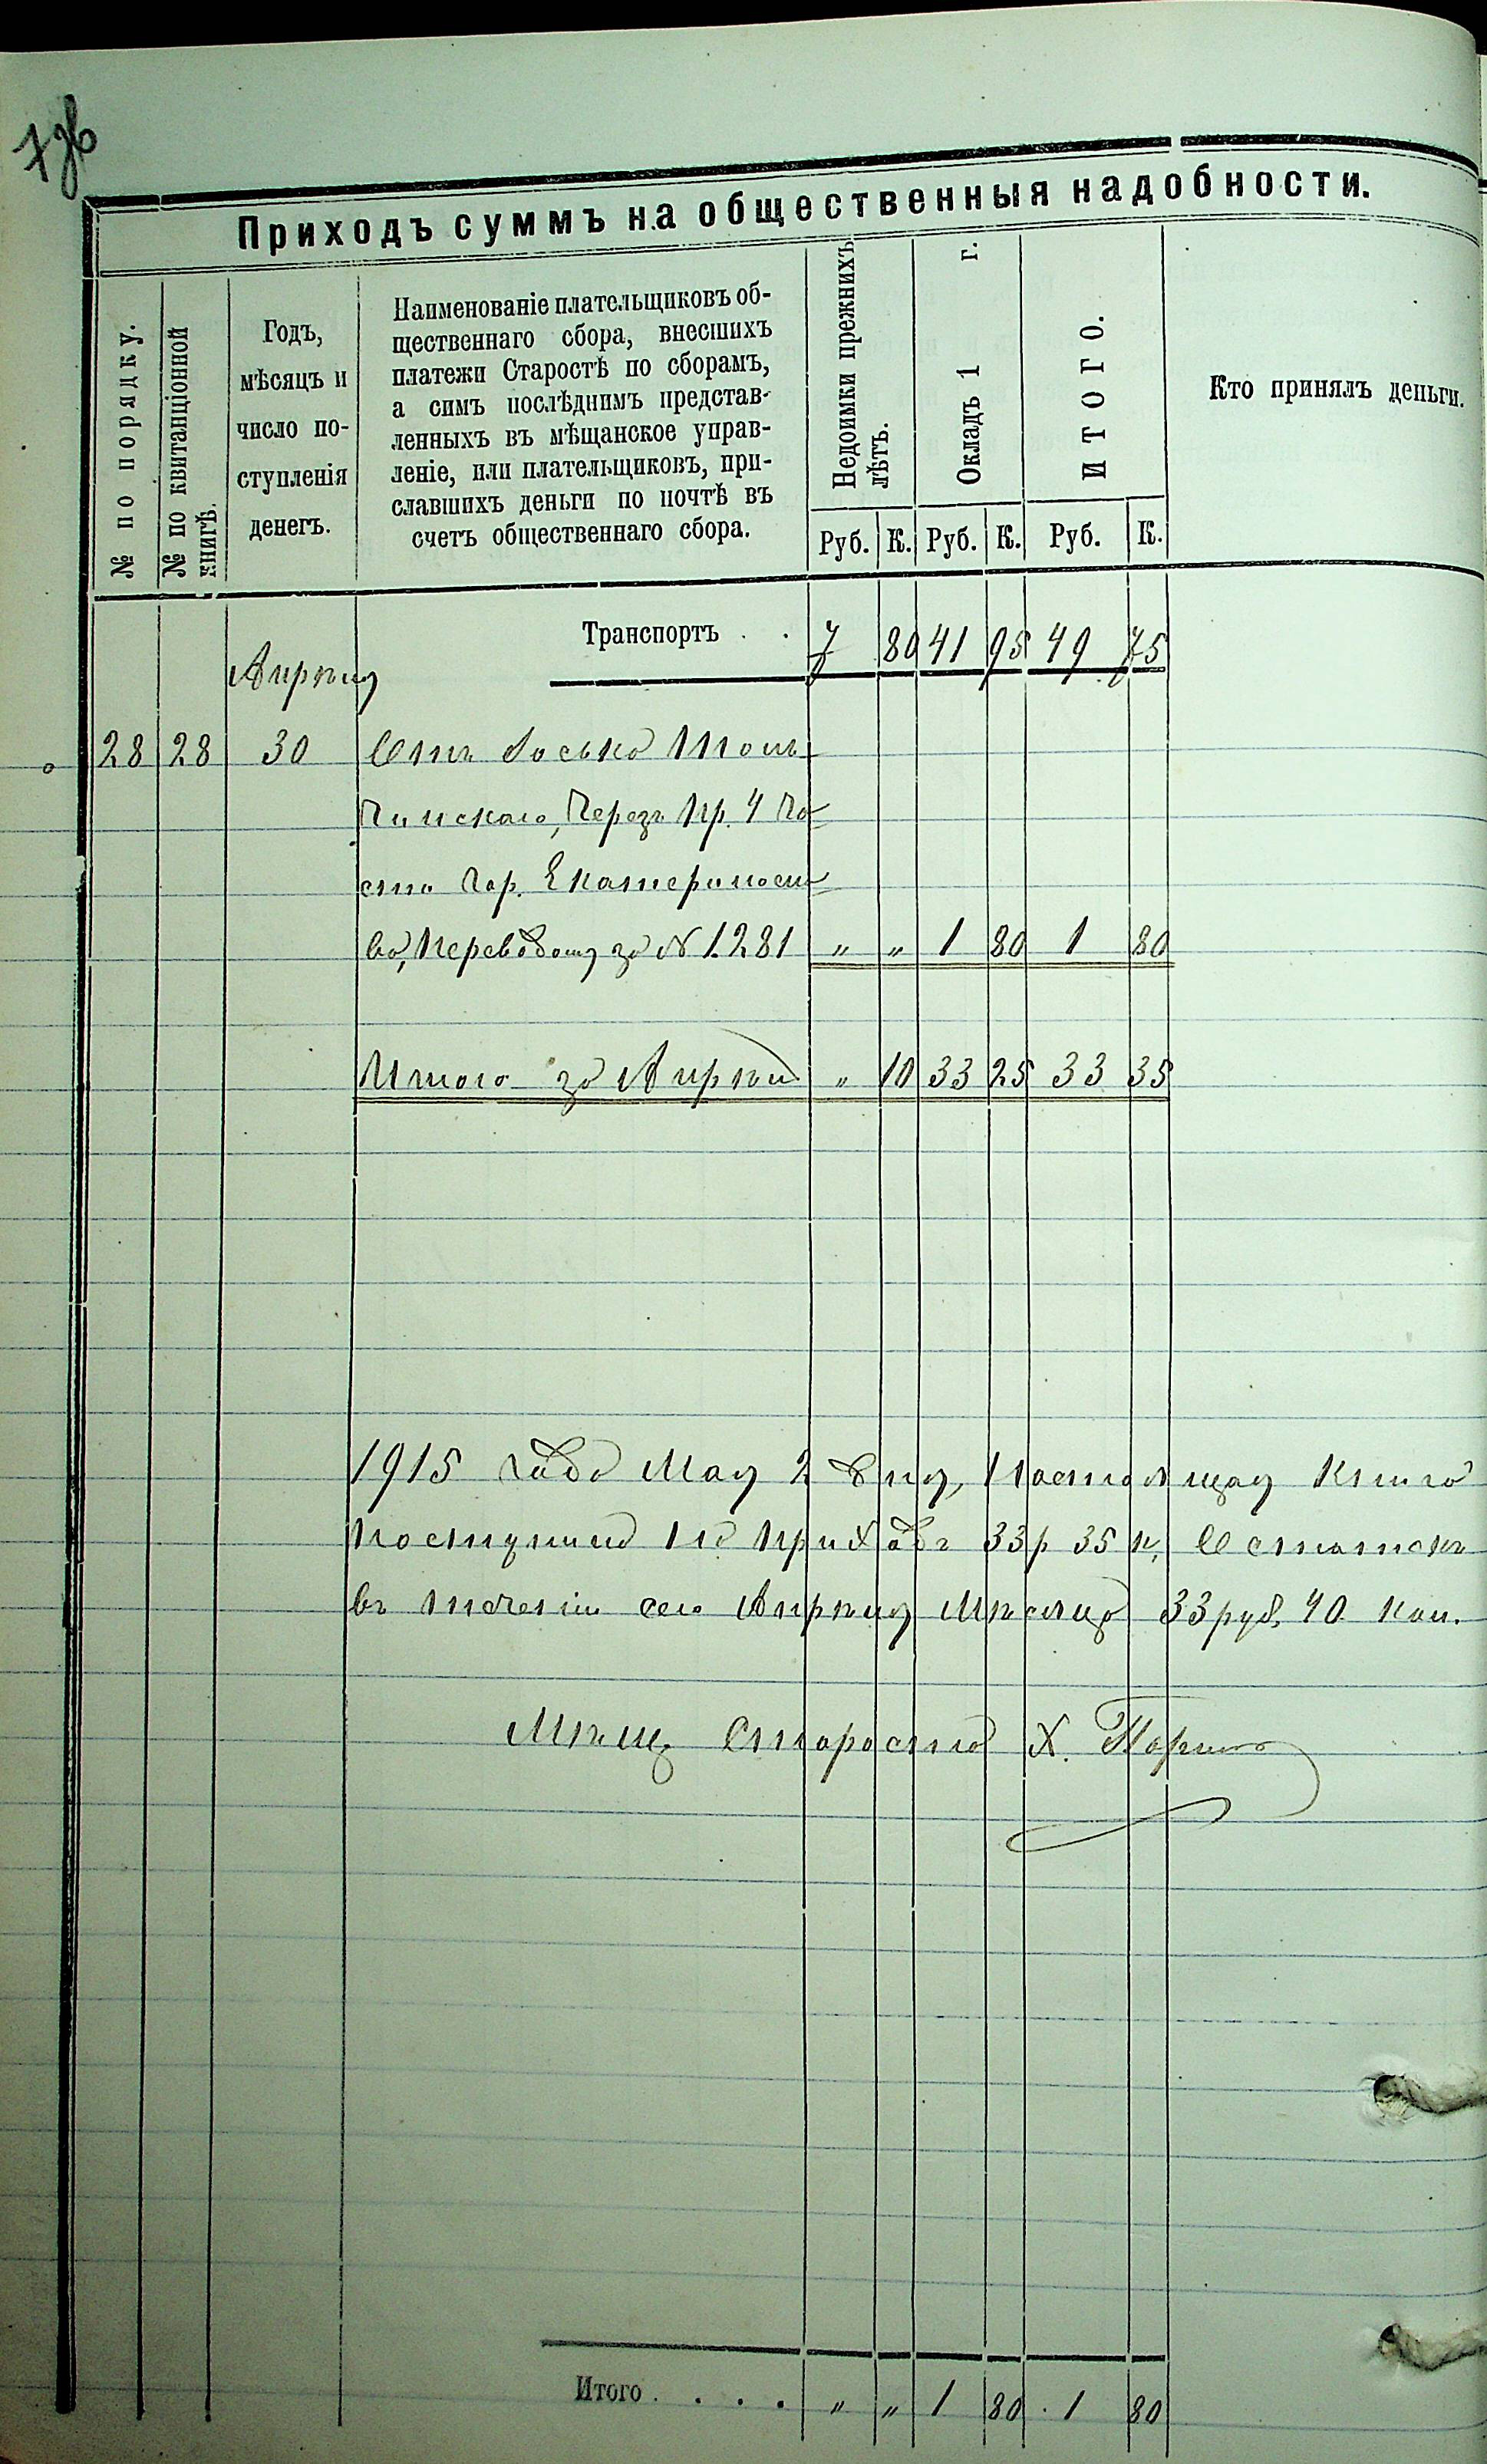 Приходъ суммъ на общественныя надобности.
№ по порядку.
№ по квитанціонной
книгѣ.
Годъ,
мѣсяцъ и
число по-
ступленія
денегъ.
Наименованіе плательщиковъ об-
щественнаго сбора, внесшихъ
платежи Старостѣ по сборамъ,
а симъ послѣднимъ представ-
ленныхъ въ мѣщанское управ-
леніе, или плательщиковъ, при-
славшихъ деньги по почтѣ въ
счетъ общественнаго сбора.
Недоимки прежнихъ
лѣтъ.
Окладъ 1 г.
ИТОГО.
Кто принялъ деньги.
Руб. К. Руб. К. Руб. К.
Транспортъ . . 7 80 41 95 49 75
Апрѣля
28 28 30 Отъ Іоська
Через пр. 4
Гор. Екатериносла
ва, переводомъ за № 1281 " " 1 80 1 80
Итого за Апрѣль " 10 33 25 33 35
1915 года Мая 2 дня, Настоящая книга
поступило на приходъ 33 р 35 к, Остатокъ
въ теченіи сего Апрѣля Мѣсяца 33 руб. 40 коп.
Мѣщ. Староста Х.
Итого . . . . " " 1 80 . 1 80